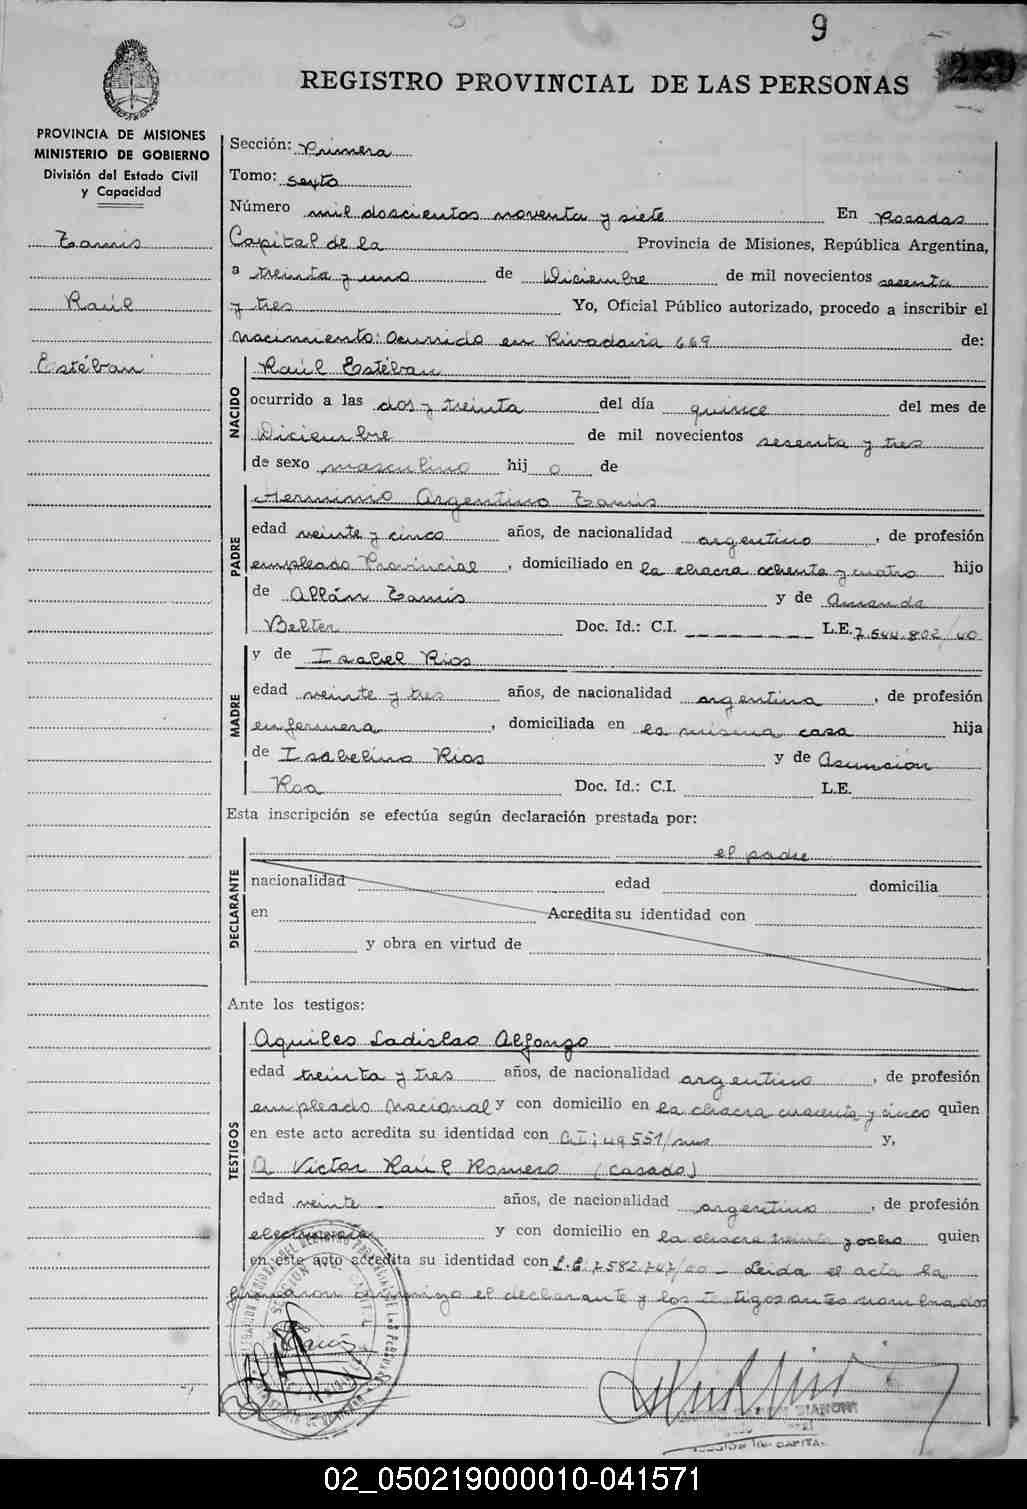 9
229
REGISTRO PROVINCIAL DE LAS PERSONAS
PROVINCIA DE MISIONES
MINISTERIO DE GOBIERNO
División del Estado Civil
y Capacidad
Tamis
Raúl
Estéban
Sección: Primera
Tomo: sexto
Número mil doscientos noventa y siete En Posadas
Capital de la Provincia de Misiones, República Argentina,
a treinta y uno de Diciembre de mil novecientos sesenta
y tres Yo, Oficial Público autorizado, procedo a inscribir el
nacimiento: Ocurrido en Rivadavia 669 de:
NACIDO
Raúl Estéban
ocurrido a las dos y treinta del día quince del mes de
Diciembre de mil novecientos sesenta y tres
de sexo masculino hij o de
PADRE
Herminio Argentino Tamis
edad veinte y cinco años, de nacionalidad argentino, de profesión
empleado Provincial, domiciliado en la chacra ochenta y cuatro hijo
de Allán Tamis y de Amanda
Belter Doc. Id.: C.I. L.E. 7.544.802/40
MADRE
y de Isabel Rios
edad veinte y tres años, de nacionalidad argentina, de profesión
enfermera, domiciliada en la misma casa hija
de Isabelino Rios y de Asunción
Roa Doc. Id.: C.I. L.E.
Esta inscripción se efectúa según declaración prestada por:
DECLARANTE
el padre
nacionalidad edad domicilia
en Acredita su identidad con
y obra en virtud de
Ante los testigos:
TESTIGOS
Aquiles Ladislao Alfonzo
edad treinta y tres años, de nacionalidad argentino, de profesión
empleado Nacional y con domicilio en la chacra cuarenta y cinco quien
en este acto acredita su identidad con C.I: 49551/mns y,
a Victor Raúl Romero (casado)
edad veinte años, de nacionalidad argentino, de profesión
electricista y con domicilio en la chacra treinta y ocho quien
en este acto acredita su identidad con L.E: 7582.747/60 - Leida el acta la
firmaron conmigo el declarante y los testigos antes nombrados
02_050219000010-041571